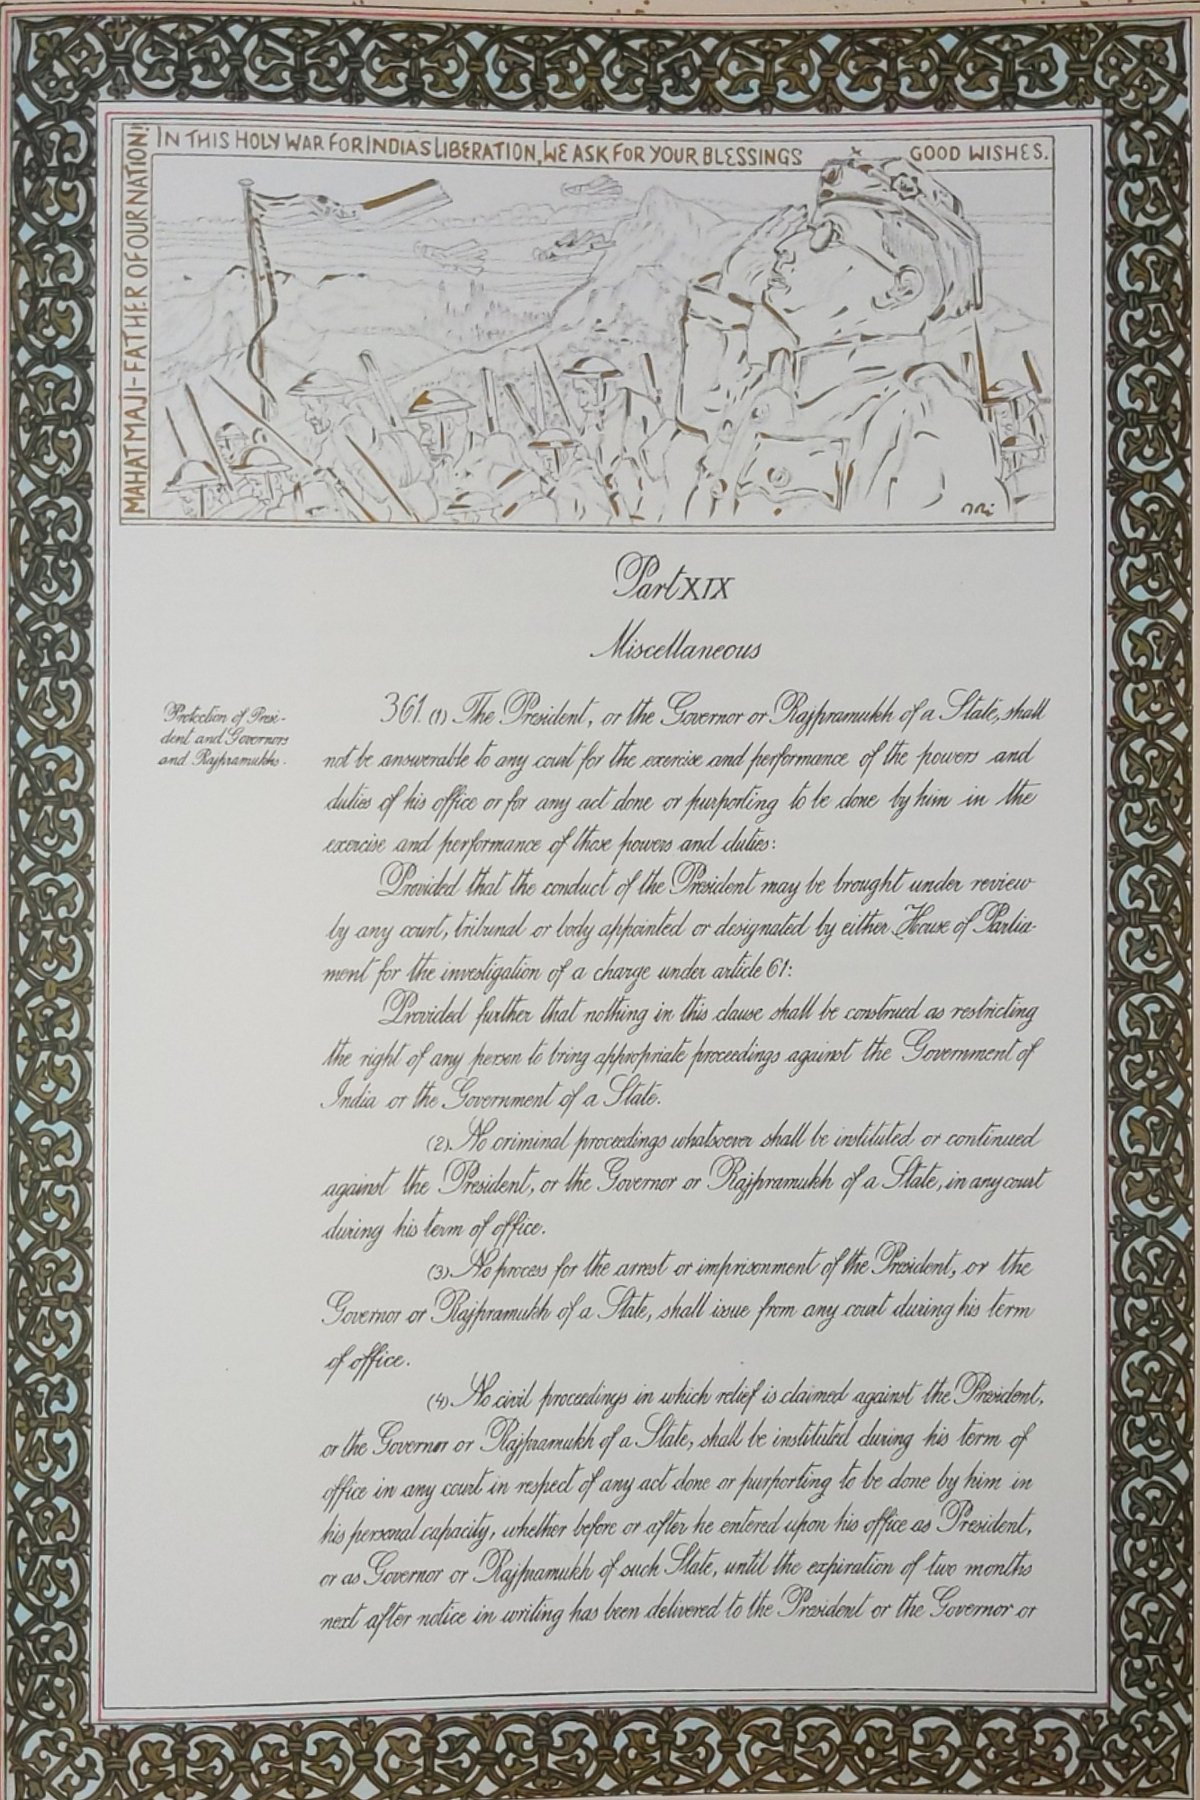 MAHATMAJI-FATHER OF OUR NATION!
IN THIS HOLY WAR FOR INDIAS LIBERATION, WE ASK FOR YOUR BLESSINGS GOOD WISHES.
Part XIX
Miscellaneous
Protection of Presi-
dent and Governors
and Rajpramukhs.
361. (1) The President, or the Governor or Rajpramukh of a State, shall
not be answerable to any court for the exercise and performance of the powers and
duties of his office or for any act done or purporting to be done by him in the
exercise and performance of those powers and duties:
Provided that the conduct of the President may be brought under review
by any court, tribunal or body appointed or designated by either House of Parlia-
ment for the investigation of a charge under article 61:
Provided further that nothing in this clause shall be construed as restricting
the right of any person to bring appropriate proceedings against the Government of
India or the Government of a State.
(2) No criminal proceedings whatsoever shall be instituted or continued
against the President, or the Governor or Rajpramukh of a State, in any court
during his term of office.
(3) No process for the arrest or imprisonment of the President, or the
Governor or Rajpramukh of a State, shall issue from any court during his term
of office.
(4) No civil proceedings in which relief is claimed against the President,
or the Governor or Rajpramukh of a State, shall be instituted during his term of
office in any court in respect of any act done or purporting to be done by him in
his personal capacity, whether before or after he entered upon his office as President,
or as Governor or Rajpramukh of such State, until the expiration of two months
next after notice in writing has been delivered to the President or the Governor or